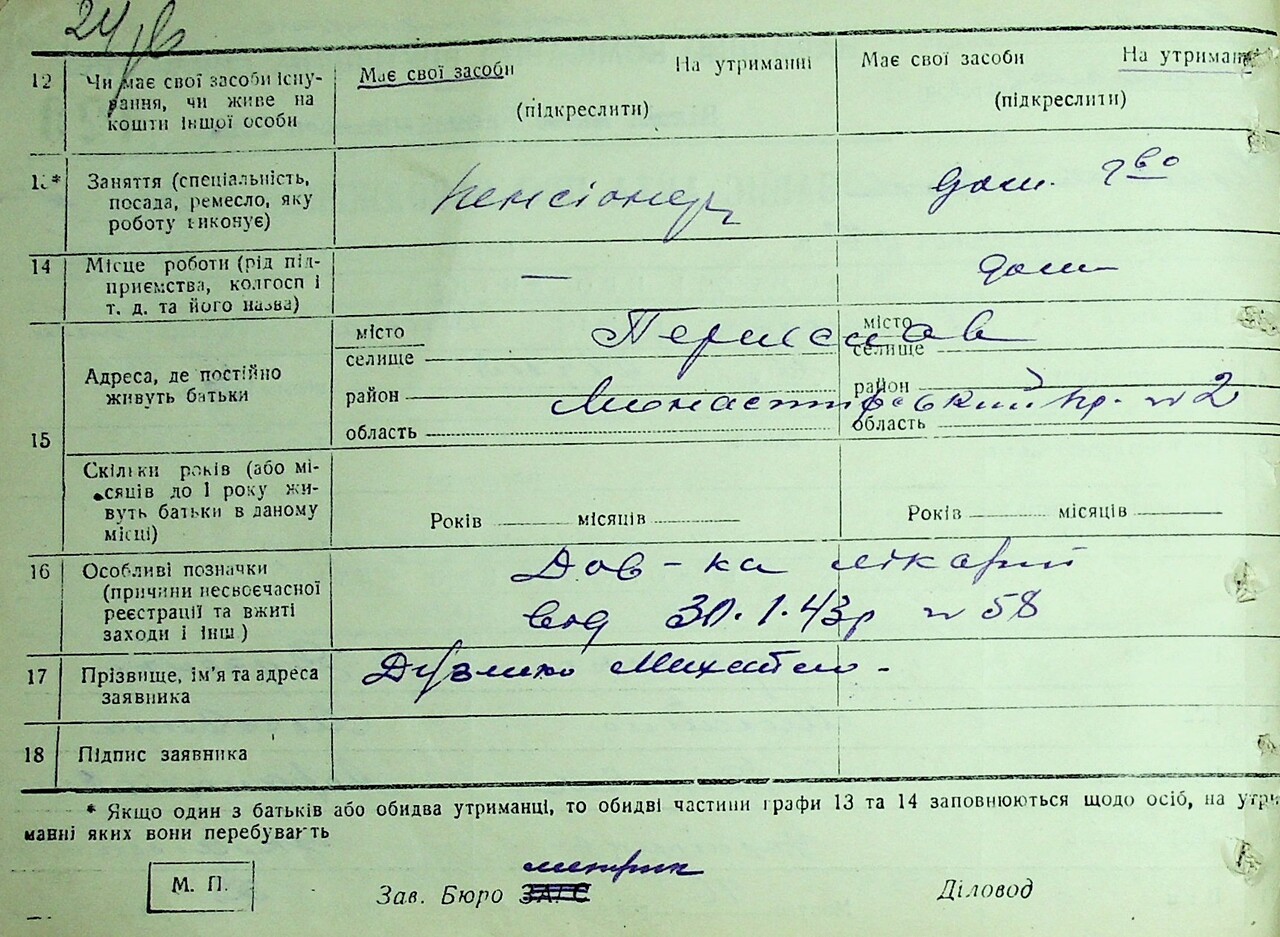 24/
12 Чи має свої засоби існу- Має свої засоби На утриманні Має свої засоби На утриманні
вання, чи живе на (підкреслити) (підкреслити)
кошти іншої особи
13* Заняття (спеціальність, Пенсіонер дом. г-во
посада, ремесло, яку
роботу виконує)
14 Місце роботи (рід під- — дом
приємства, колгосп і
т. д. та його назва)
15 Адреса, де постійно
живуть батьки
місто Переяслав місто
селище селище
район Монастирський пр. № 2 район
область область
Скільки років (або мі-
сяців до 1 року жи-
вуть батьки в даному
місці)
Років місяців Років місяців
16 Особливі позначки Дов-ка лікарні
(причини несвоєчасної від 30.1.43р № 58
реєстрації та вжиті
заходи і інш.)
17 Прізвище, ім'я та адреса Михайло -
заявника
18 Підпис заявника
* Якщо один з батьків або обидва утриманці, то обидві частини графи 13 та 14 заповнюються щодо осіб, на утри-
манні яких вони перебувають
метрик
М. П. Зав. Бюро ЗАГС Діловод